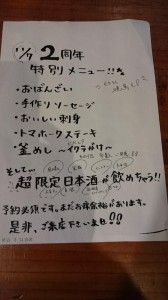 11/7 2周年
特別メニュー!!
・おばんざい
・手作りソーセージ
・おいしい刺身
・トマホークステーキ
・釜めし 〜イクラがけ〜
そして…
超限定日本酒が飲めちゃう!!
予約必須です。まだお席余裕があります。
是非、ご来店下さいませ!!